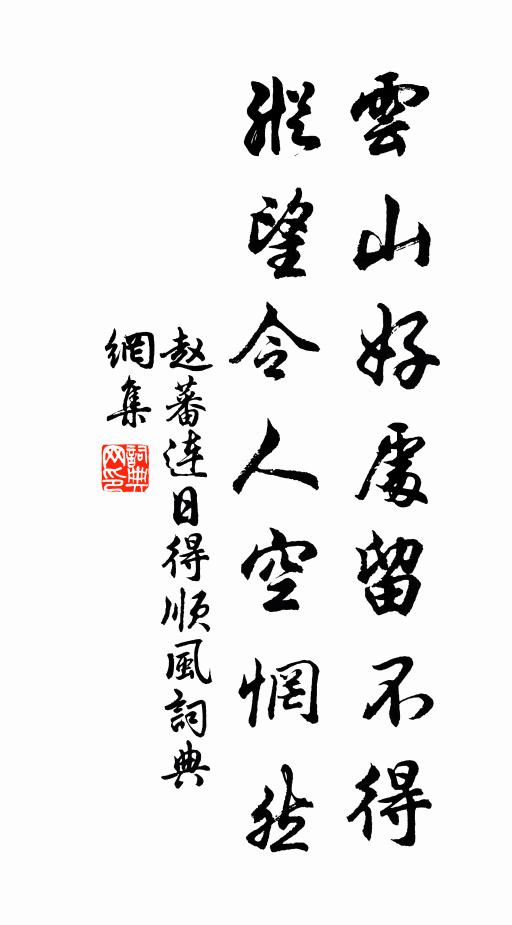 雲山好處留不得
縱望令人空惘然
趙蕃連日得順風詞典
網集
詞典
网印